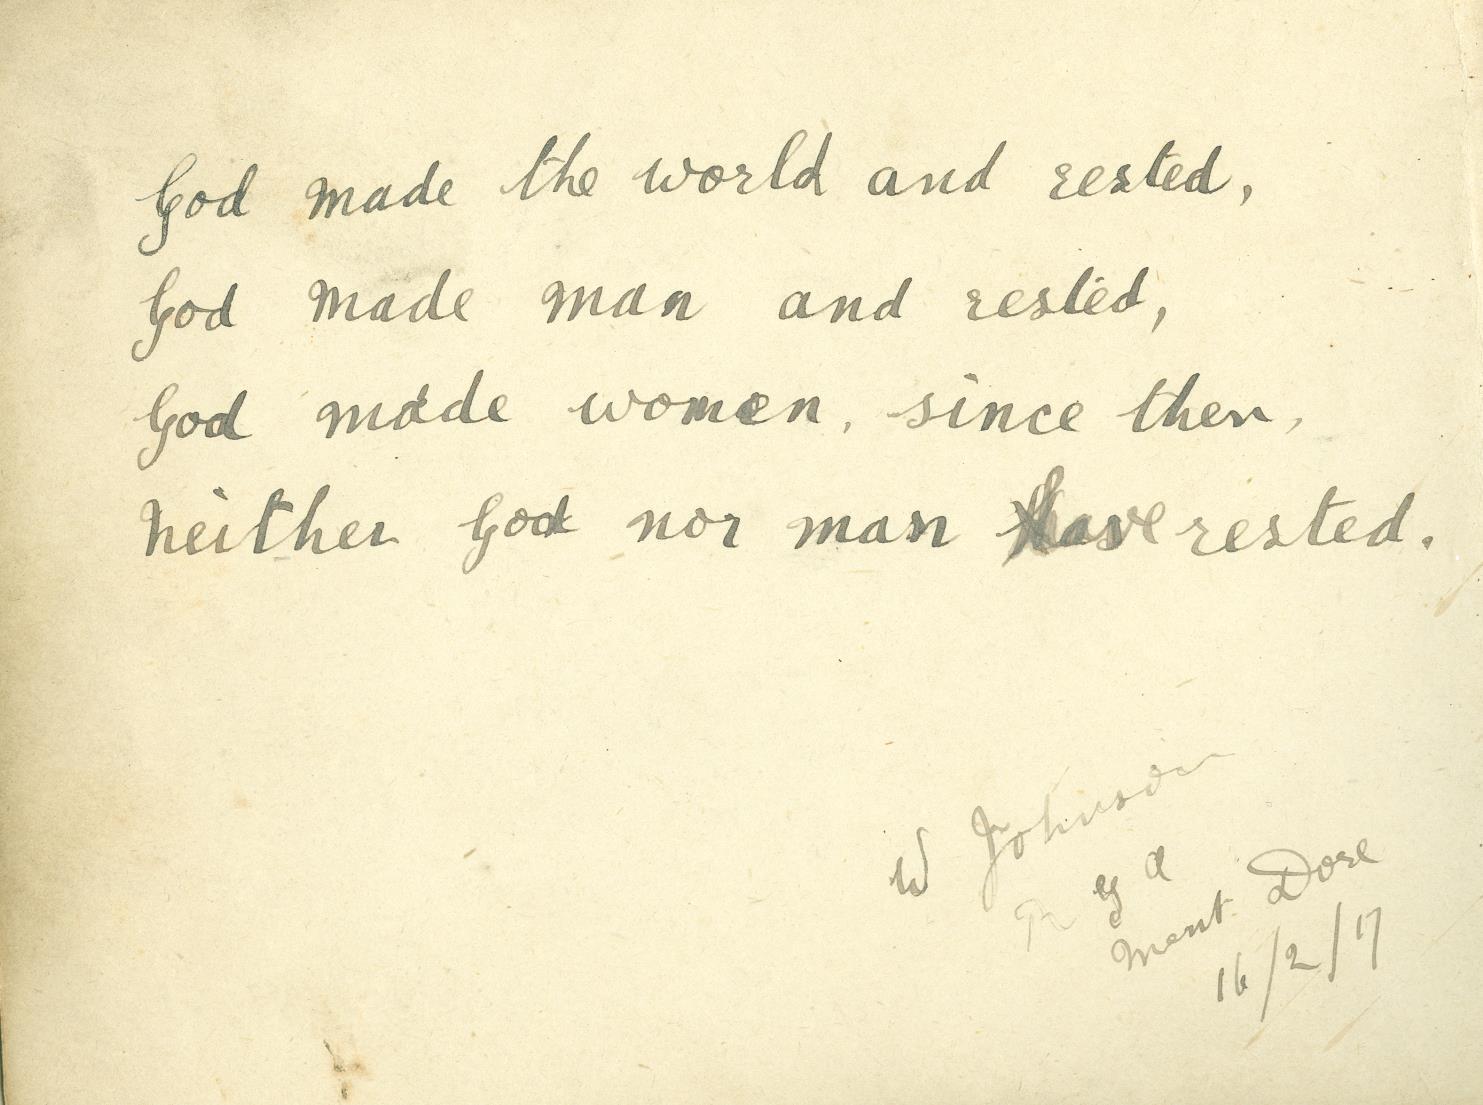 God made the world and rested,
God made man and rested,
God made women, since then,
neither God nor man have rested.
W Johnson
R G A
Mont Dore
16/2/17